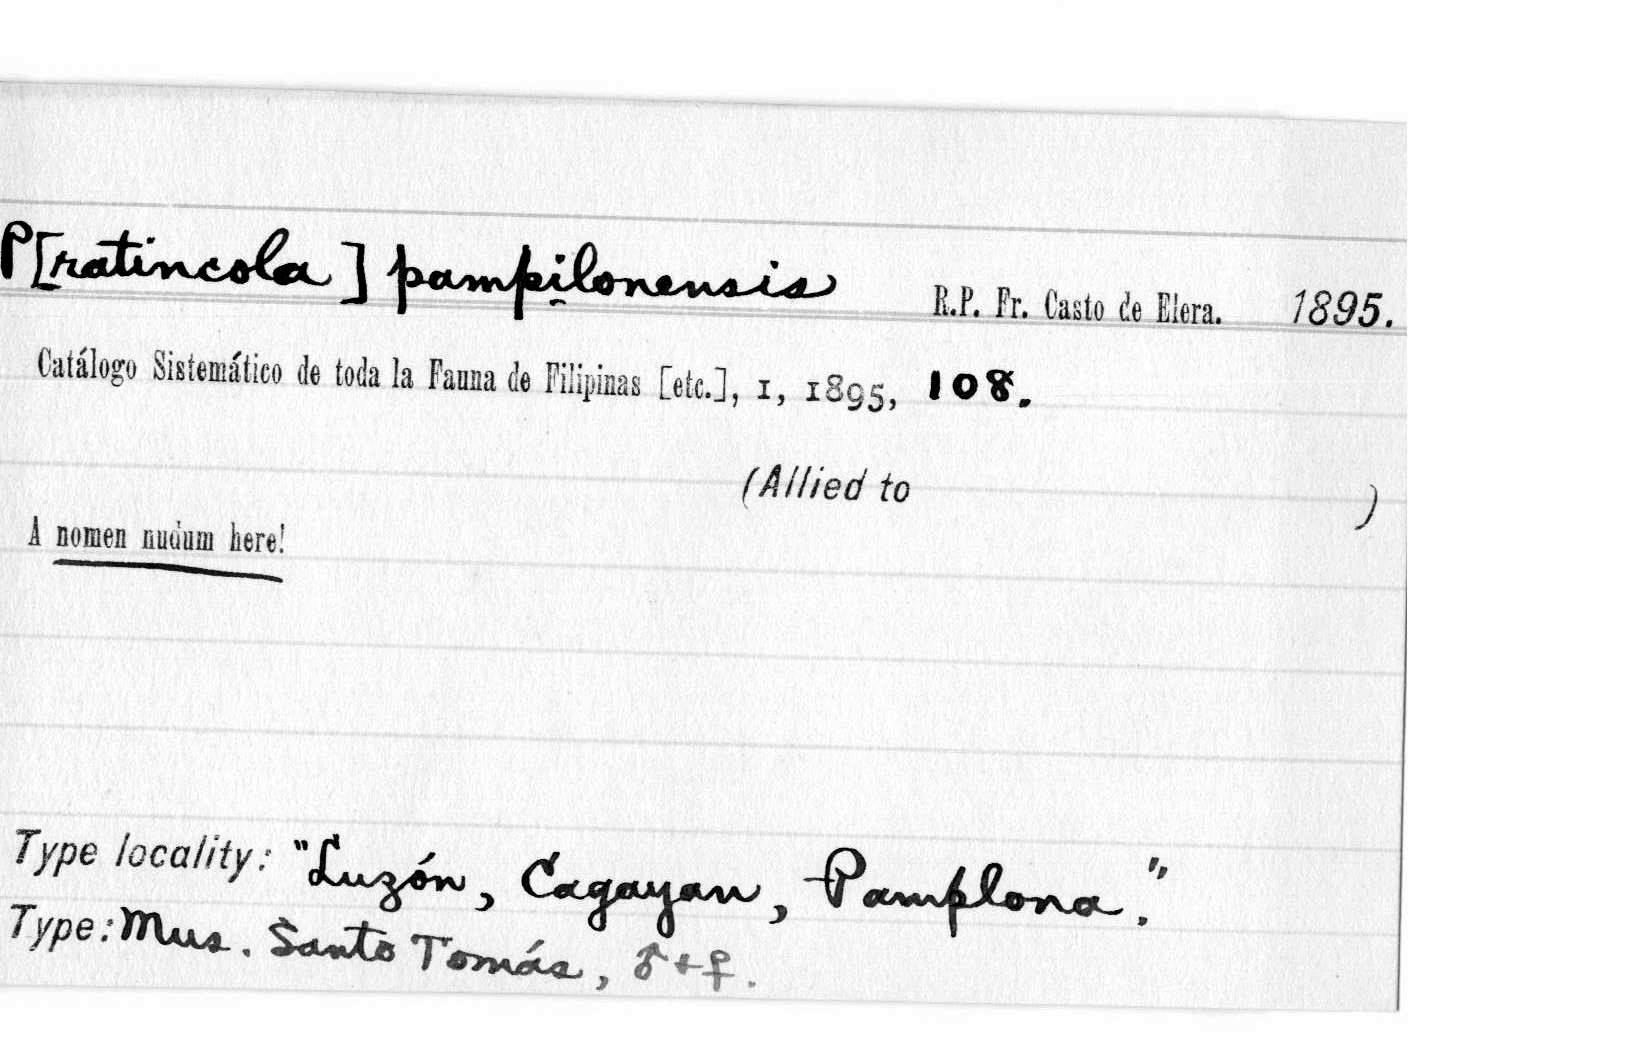 P[ratincola] pampilonensis R.P. Fr. Casto de Elera. 1895.
Catálogo Sistemático de toda la Fauna de Filipinas [etc.], I, 1895, 108.
(Allied to )
A nomen nudum here!
Type locality: "Luzón, Cagayan, Pamplona."
Type: Mus. Santo Tomás, ♂+♀.